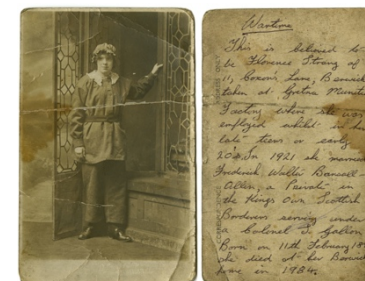 Wartime
This is believed to
be Florence Strang of
11, Coxon's Lane, Berwick
taken at Gretna Muniti
Factory where she was
employed whilst in her
late teens or early
20's. In 1921 she married
Frederick Walter
Allen, a Private in
the Kings Own Scottish
Borderers serving under
a Colonel
Born on 11th February 18
she died at her Berwick
home in 1984.